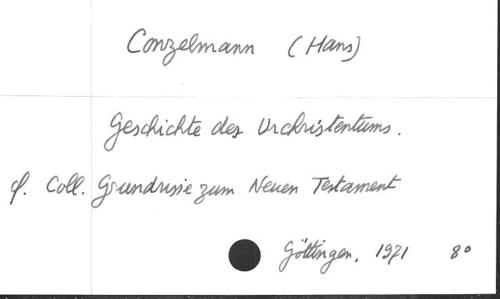 Conzelmann (Hans)
Geschichte des Urchristentums.
cf. Coll. Grundrisse zum Neuen Testament
Göttingen, 1971 8°